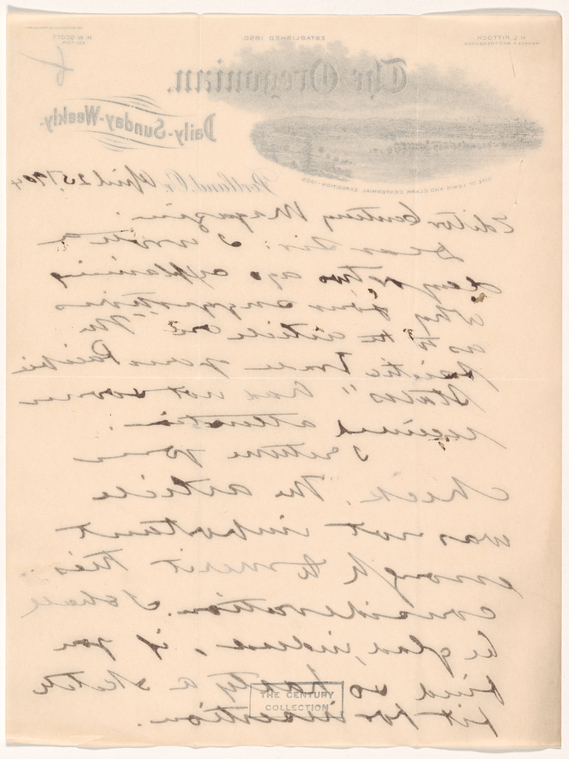 H. L. PITTOCK
ESTABLISHED 1850
H. W. SCOTT
EDITOR
The Oregonian.
Daily-Sunday-Weekly
SITE OF LEWIS AND CLARK CENTENNIAL EXPOSITION 1905
Portland, Or., April 25, 1904
Editor Century Magazine:
Dear Sir: I wrote a
day or two ago explaining
why your suggestions
as to the article on "The
Pacific Trade your Pacific
States" had not sooner
received attention.
I return your
check. The article
was not important
enough to merit this
consideration. I shall
be glad, indeed, if you
find so hasty a sketch
fit for insertion.
THE CENTURY
COLLECTION